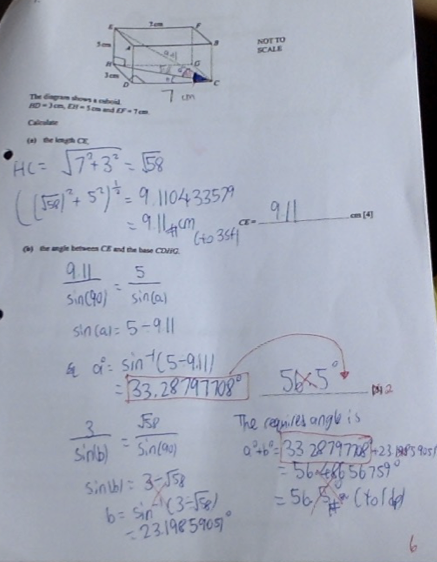 7 cm
E
F
5 cm
A
B
9.11
NOT TO
SCALE
H
G
3 cm
D
C
7 cm
The diagram shows a cuboid.
HD = 3 cm, EH = 5 cm and EF = 7 cm
Calculate
(a) the length CE,
HC = √7²+3² = √58
((√58)² + 5²)^½ = 9.110433579
= 9.11 cm
(to 3sf)
CE = 9.11 cm [4]
(b) the angle between CE and the base CDHG.
9.11/sin(90) = 5/sin(a)
sin(a) = 5÷9.11
a° = sin⁻¹(5÷9.11)
= 33.28797708°
56.5° 2
3/sin(b) = √58/sin(90)
sin(b) = 3÷√58
b = sin⁻¹(3÷√58)
= 23.19859051°
The requires angle is
a°+b° = 33.28797708°+23.19859051
= 56.48656759°
= 56.5° (to 1dp)
6